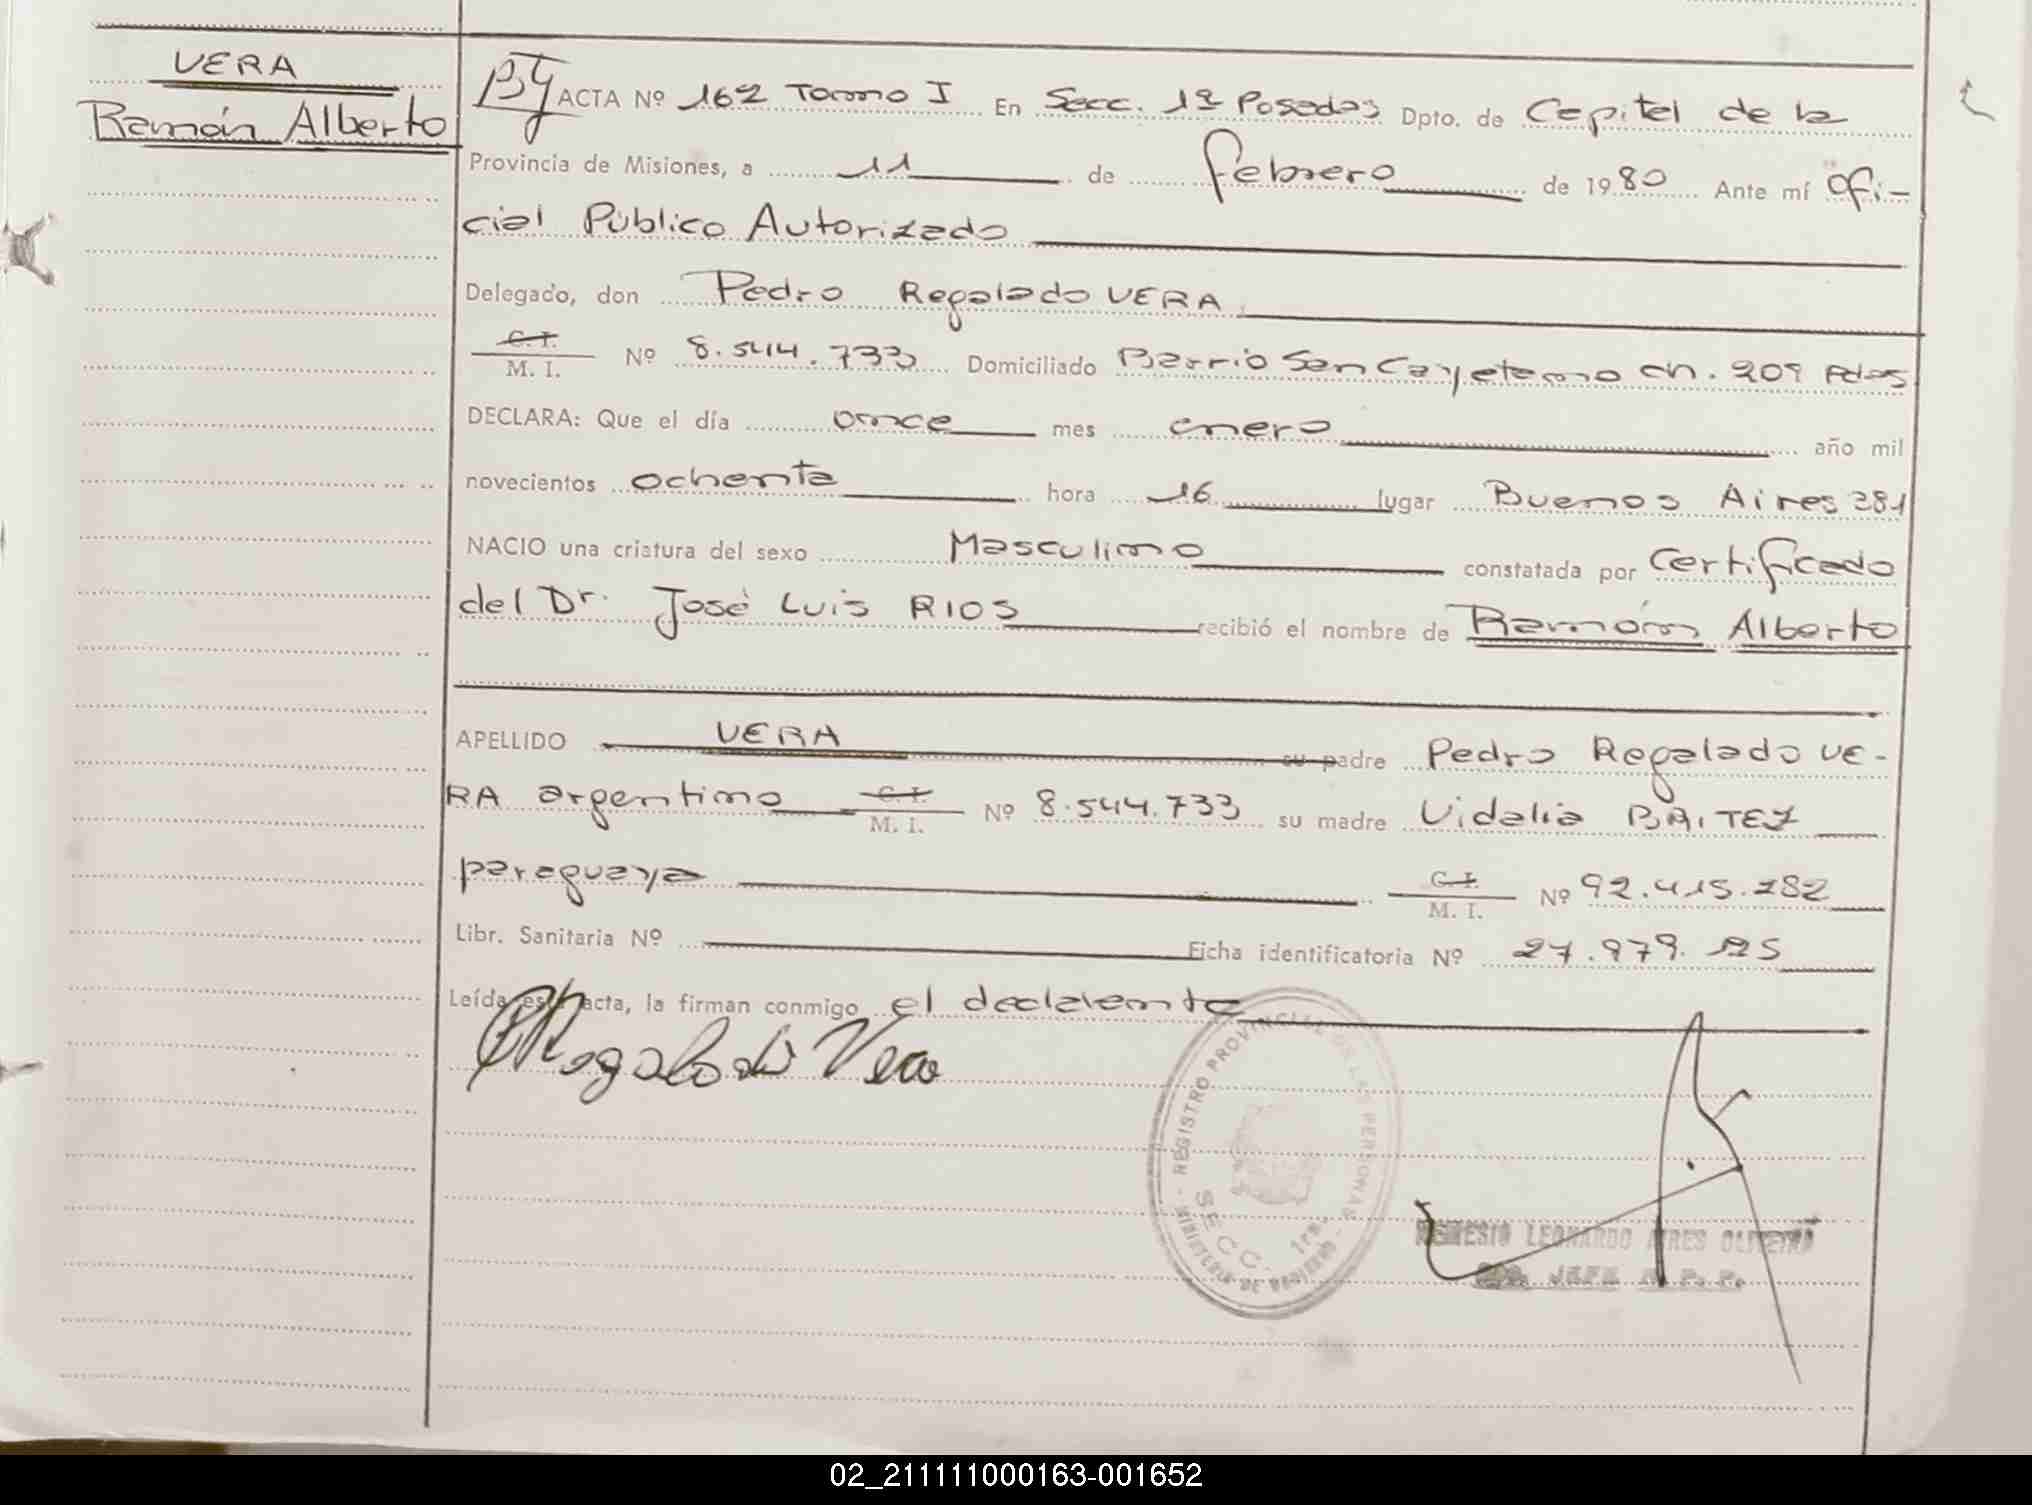 VERA
Ramón Alberto
ACTA Nº 162 Tomo I En Secc. 1ª Posadas Dpto. de Capital de la
Provincia de Misiones, a 11 de febrero de 1980 Ante mí Ofi-
cial Público Autorizado
Delegado, don Pedro Regalado VERA
C. I.
M. I. Nº 8.544.733 Domiciliado Barrio San Cayetano ch. 209 Pdas
DECLARA: Que el día once mes enero año mil
novecientos ochenta hora 16 lugar Buenos Aires 281
NACIO una criatura del sexo Masculino constatada por Certificado
del Dr. José Luis RIOS recibió el nombre de Ramón Alberto
APELLIDO VERA su padre Pedro Regalado VE-
RA argentino C. I.
M. I. Nº 8.544.733 su madre Vidalia BAITEZ
paraguaya C. I.
M. I. Nº 92.415.282
Libr. Sanitaria Nº Ficha identificatoria Nº 27.979.125
Leída esta acta, la firman conmigo el declarante
Regalado Vera
REGISTRO PROVINCIAL DE LAS PERSONAS
SECC. 1ra.
MINISTERIO DE GOBIERNO
NEMESIO LEONARDO AIRES OLIVEIRA
JEFE R. P. P.
02_211111000163-001652